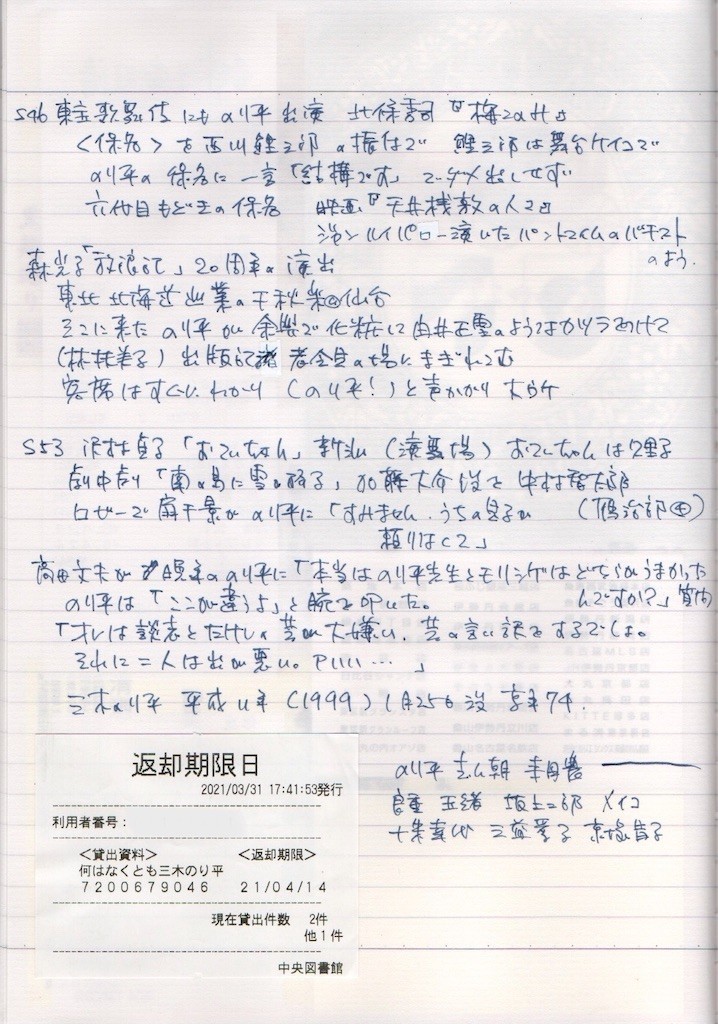 S46 東宝歌舞伎にものり平出演 北條秀司『梅こよみ』
〈保名〉を西川鯉三郎の振付で 鯉三郎は舞台ケイコで
のり平の保名に一言「結構です」でダメ出しせず
六代目もどきの保名 映画『天井桟敷の人々』
ジャン ルイ バロー演じたパントマイムのバチスト
のよう。
森光子「放浪記」20周年の演出
東北 北海道 の千秋楽 仙台
そこに来たのり平が余興で化粧して由井正雪のようなカツラつけて
(林芙美子)出版記 者会見の場にまぎれこむ
客席はすぐにわかり(のり平!)と声かかり大ウケ
S53 沢村貞子「おていちゃん」 (演舞場)おていちゃんは
劇中劇「南の島に雪が降る」加藤大介 を中村 太郎
ロビーで扇千景がのり平に「すみません。うちの息子が
(鴈治郎④)
頼りなくて」
高田文夫が のり平に「本当はのり平先生とモリシゲはどちらがうまかった
んですか?」質問
のり平は「ここが違うよ」と腕を叩いた。
「オレは談志とたけしの芸が大嫌い。芸の言い訳をするでしょ。
それに二人は出が悪い。P111…」
三木のり平 平成11年(1999)1月25日没 享年74.
返却期限日
2021/03/31 17:41:53発行
利用者番号:
<貸出資料> <返却期限>
何はなくとも三木のり平
7200679046 21/04/14
現在貸出件数 2件
他1件
中央図書館
のり平 志ん朝
玉緒 坂上二郎 メイコ
三益愛子 京塚昌子